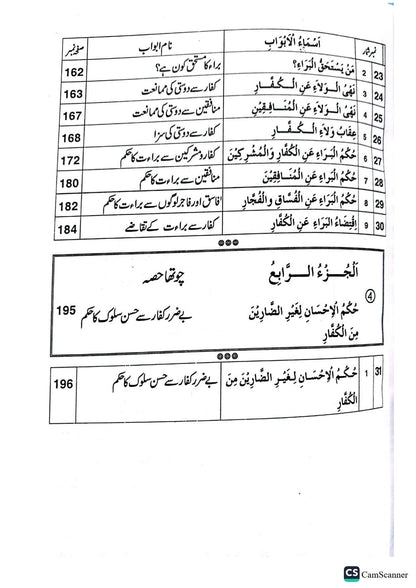 نمبر شمار اَسْمَاءُ الْاَبْوَابِ نام ابواب صفحہ نمبر
23 2 مَنْ يَسْتَحِقُّ الْبَرَاءَ؟ براء کا مستحق کون ہے؟ 162
24 3 نَهْیُ الْوِلاَءِ عَنِ الْكُفَّارِ کفار سے دوستی کی ممانعت 163
25 4 نَهْیُ الْوِلاَءِ عَنِ الْمُنَافِقِيْنَ منافقین سے دوستی کی ممانعت 167
26 5 عِقَابُ وِلاَءِ الْكُفَّارِ کفار سے دوستی کی سزا 168
27 6 حُكْمُ الْبَرَاءِ عَنِ الْكُفَّارِ وَالْمُشْرِكِيْنَ کفار و مشرکین سے براءت کا حکم 172
28 7 حُكْمُ الْبَرَاءِ عَنِ الْمُنَافِقِيْنَ منافقین سے براءت کا حکم 180
29 8 حُكْمُ الْبَرَاءِ عَنِ الْفُسَّاقِ وَالْفُجَّارِ فاسق اور فاجر لوگوں سے براءت کا حکم 182
30 9 اِقْتِضَاءُ الْبَرَاءِ عَنِ الْكُفَّارِ کفار سے براءت کے تقاضے 184
اَلْجُزْءُ الرَّابِعُ چوتھا حصہ
4 حُكْمُ الْاِحْسَانِ لِغَيْرِ الضَّارِّيْنَ بے ضرر کفار سے حسن سلوک کا حکم 195
مِنَ الْكُفَّارِ
31 1 حُكْمُ الْاِحْسَانِ لِغَيْرِ الضَّارِّيْنَ مِنَ بے ضرر کفار سے حسن سلوک کا حکم 196
الْكُفَّارِ
CS CamScanner